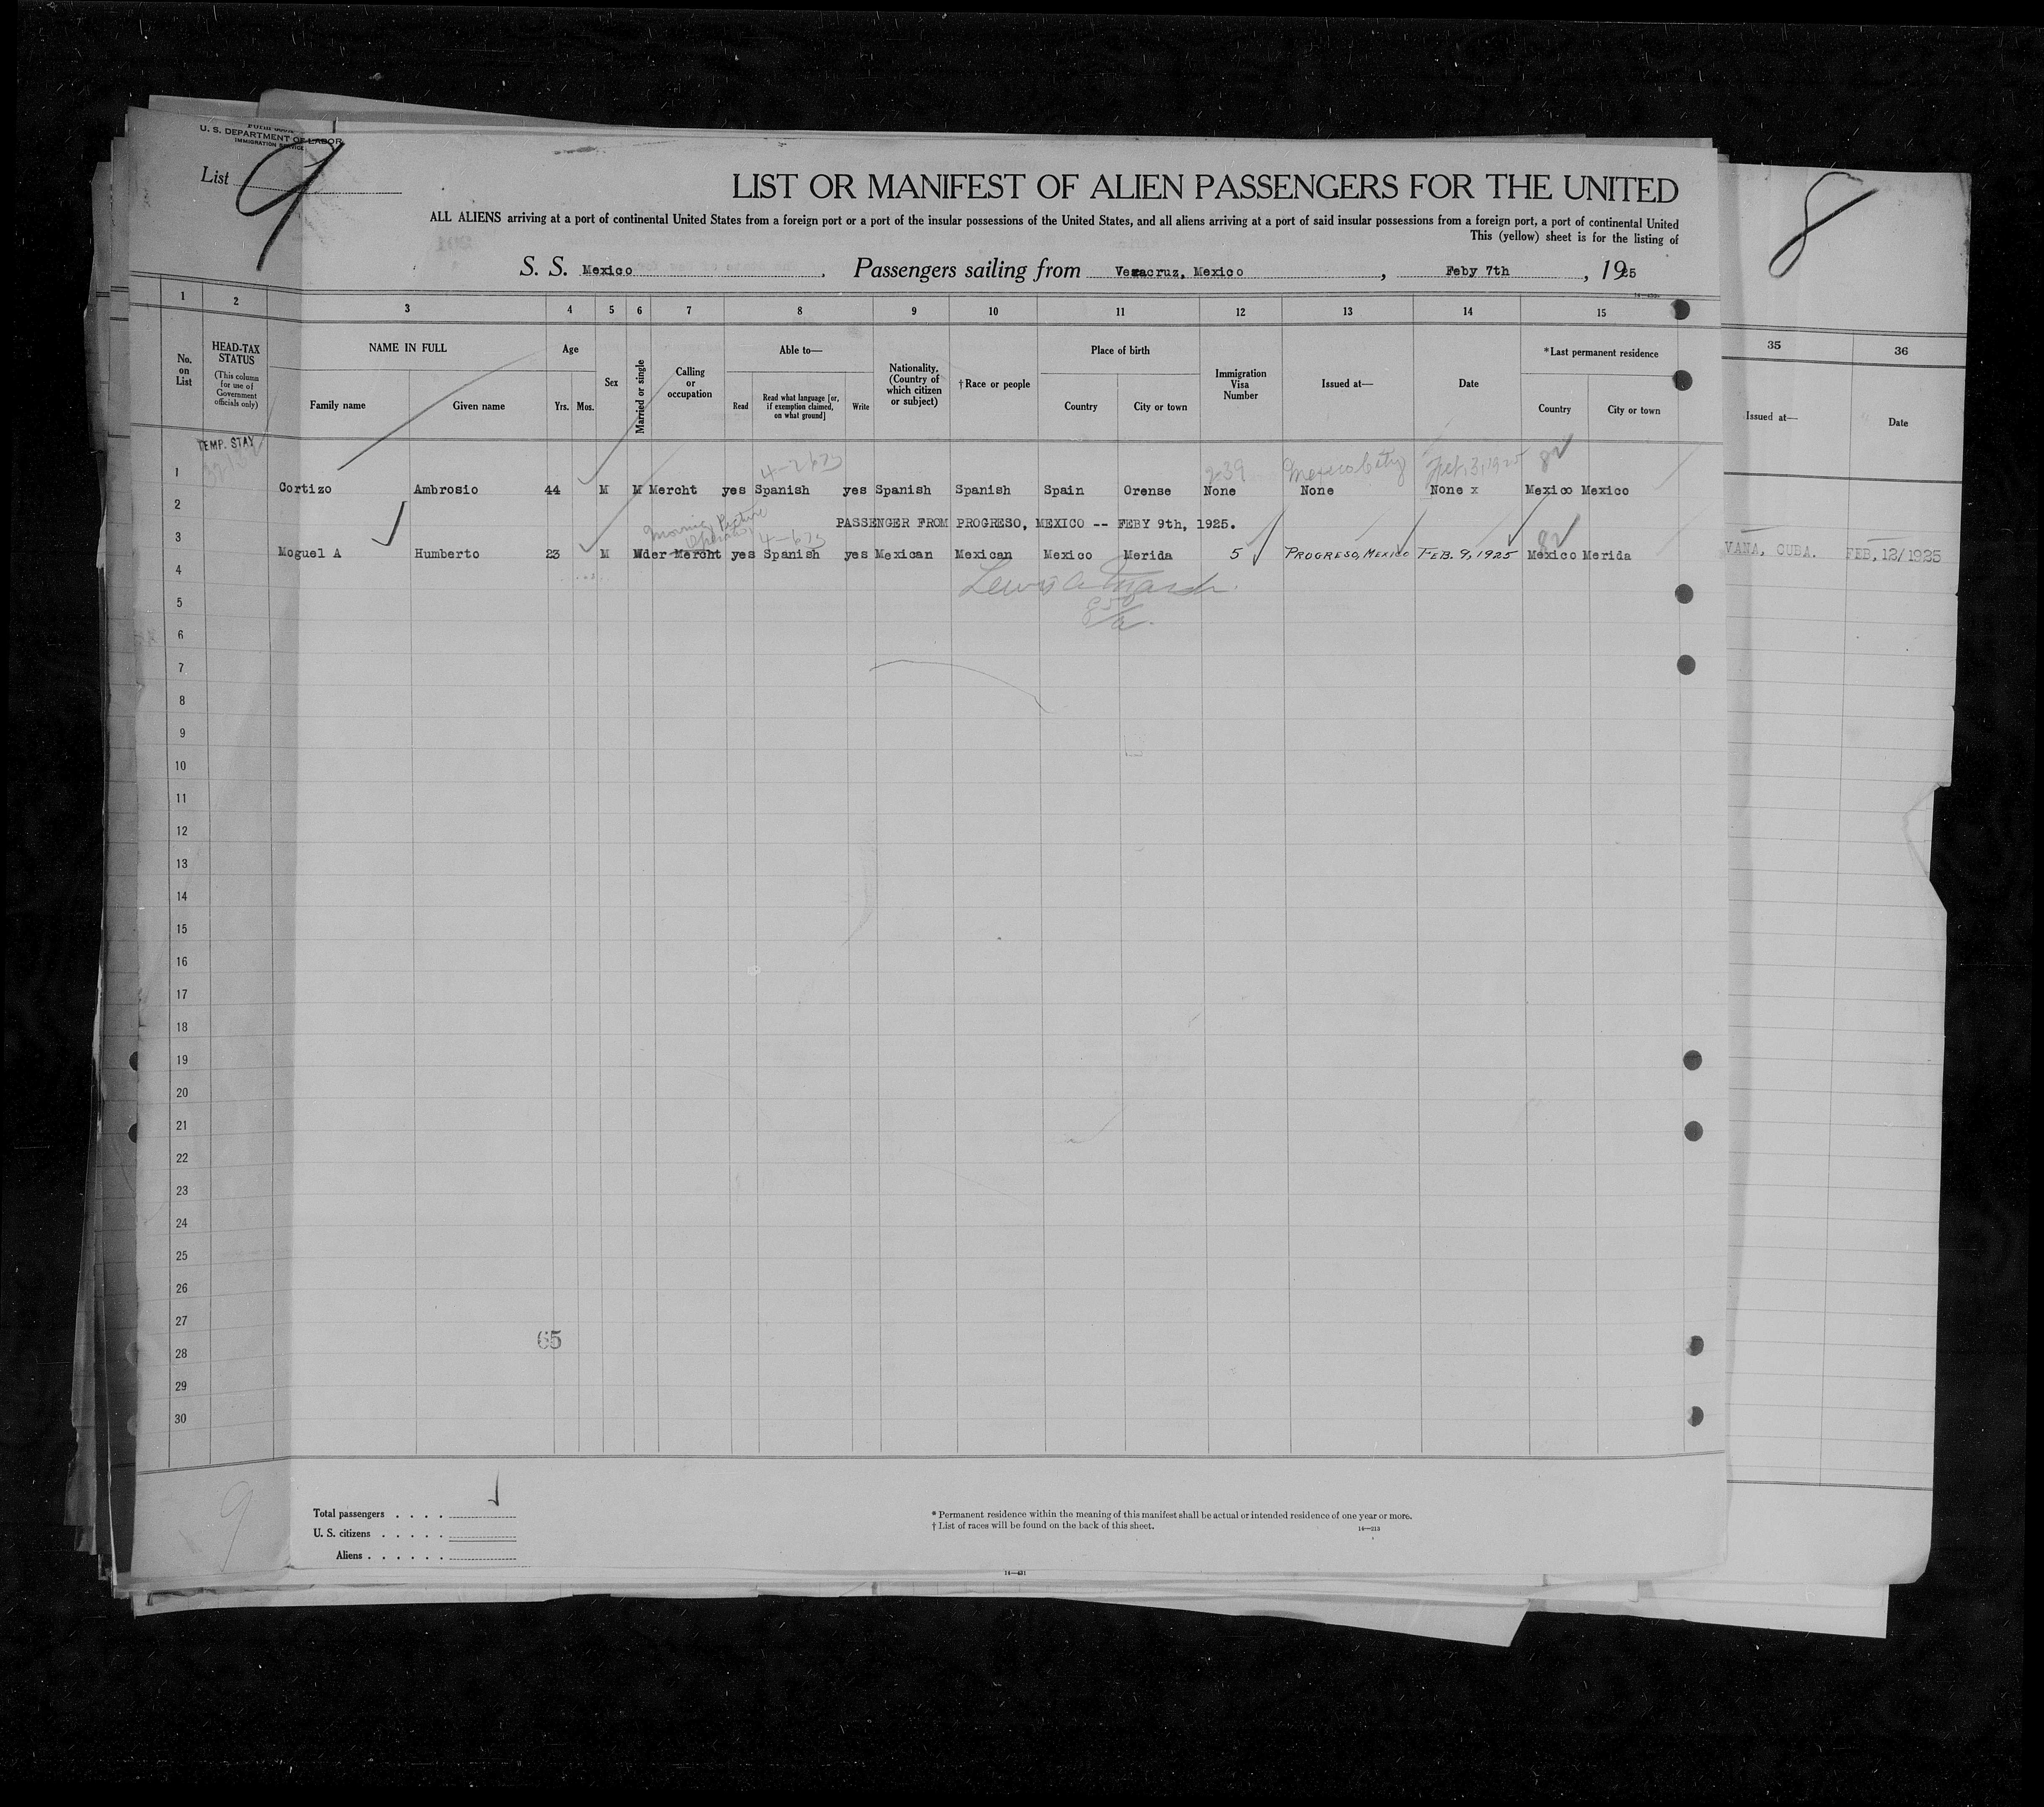 U. S. DEPARTMENT OF LABOR
IMMIGRATION SERVICE
List 9
8
LIST OR MANIFEST OF ALIEN PASSENGERS FOR THE UNITED
ALL ALIENS arriving at a port of continental United States from a foreign port or a port of the insular possessions of the United States, and all aliens arriving at a port of said insular possessions from a foreign port, a port of continental United
This (yellow) sheet is for the listing of
S. S. Mexico, Passengers sailing from Veracruz, Mexico, Feby 7th, 1925
1 2 3 4 5 6 7 8 9 10 11 12 13 14 15 35 36
No. on List
HEAD-TAX STATUS
(This column for use of Government officials only)
NAME IN FULL
Family name Given name
Age
Yrs. Mos.
Sex
Married or single
Calling or occupation
Able to—
Read
Read what language [or, if exemption claimed, on what ground]
Write
Nationality. (Country of which citizen or subject)
†Race or people
Place of birth
Country City or town
Immigration Visa Number
Issued at—
Date
*Last permanent residence
Country City or town
Issued at—
Date
TEMP. STAY
1 239 Mexico City Feb. 3, 1925
Cortizo Ambrosio 44 M M Mercht yes Spanish yes Spanish Spanish Spain Orense None None None x Mexico Mexico
2
PASSENGER FROM PROGRESO, MEXICO -- FEBY 9th, 1925.
3 Moving Picture Operator
Moguel A Humberto 23 M Wder Mercht yes Spanish yes Mexican Mexican Mexico Merida 5 PROGRESO, MEXICO FEB. 9, 1925 Mexico Merida
VANA, CUBA. FEB, 12/1925
4
5
6
7
8
9
10
11
12
13
14
15
16
17
18
19
20
21
22
23
24
25
26
27
65
28
29
30
9
Total passengers . . . .
U. S. citizens . . . . .
Aliens . . . . . .
* Permanent residence within the meaning of this manifest shall be actual or intended residence of one year or more.
† List of races will be found on the back of this sheet.
14—213
14—431